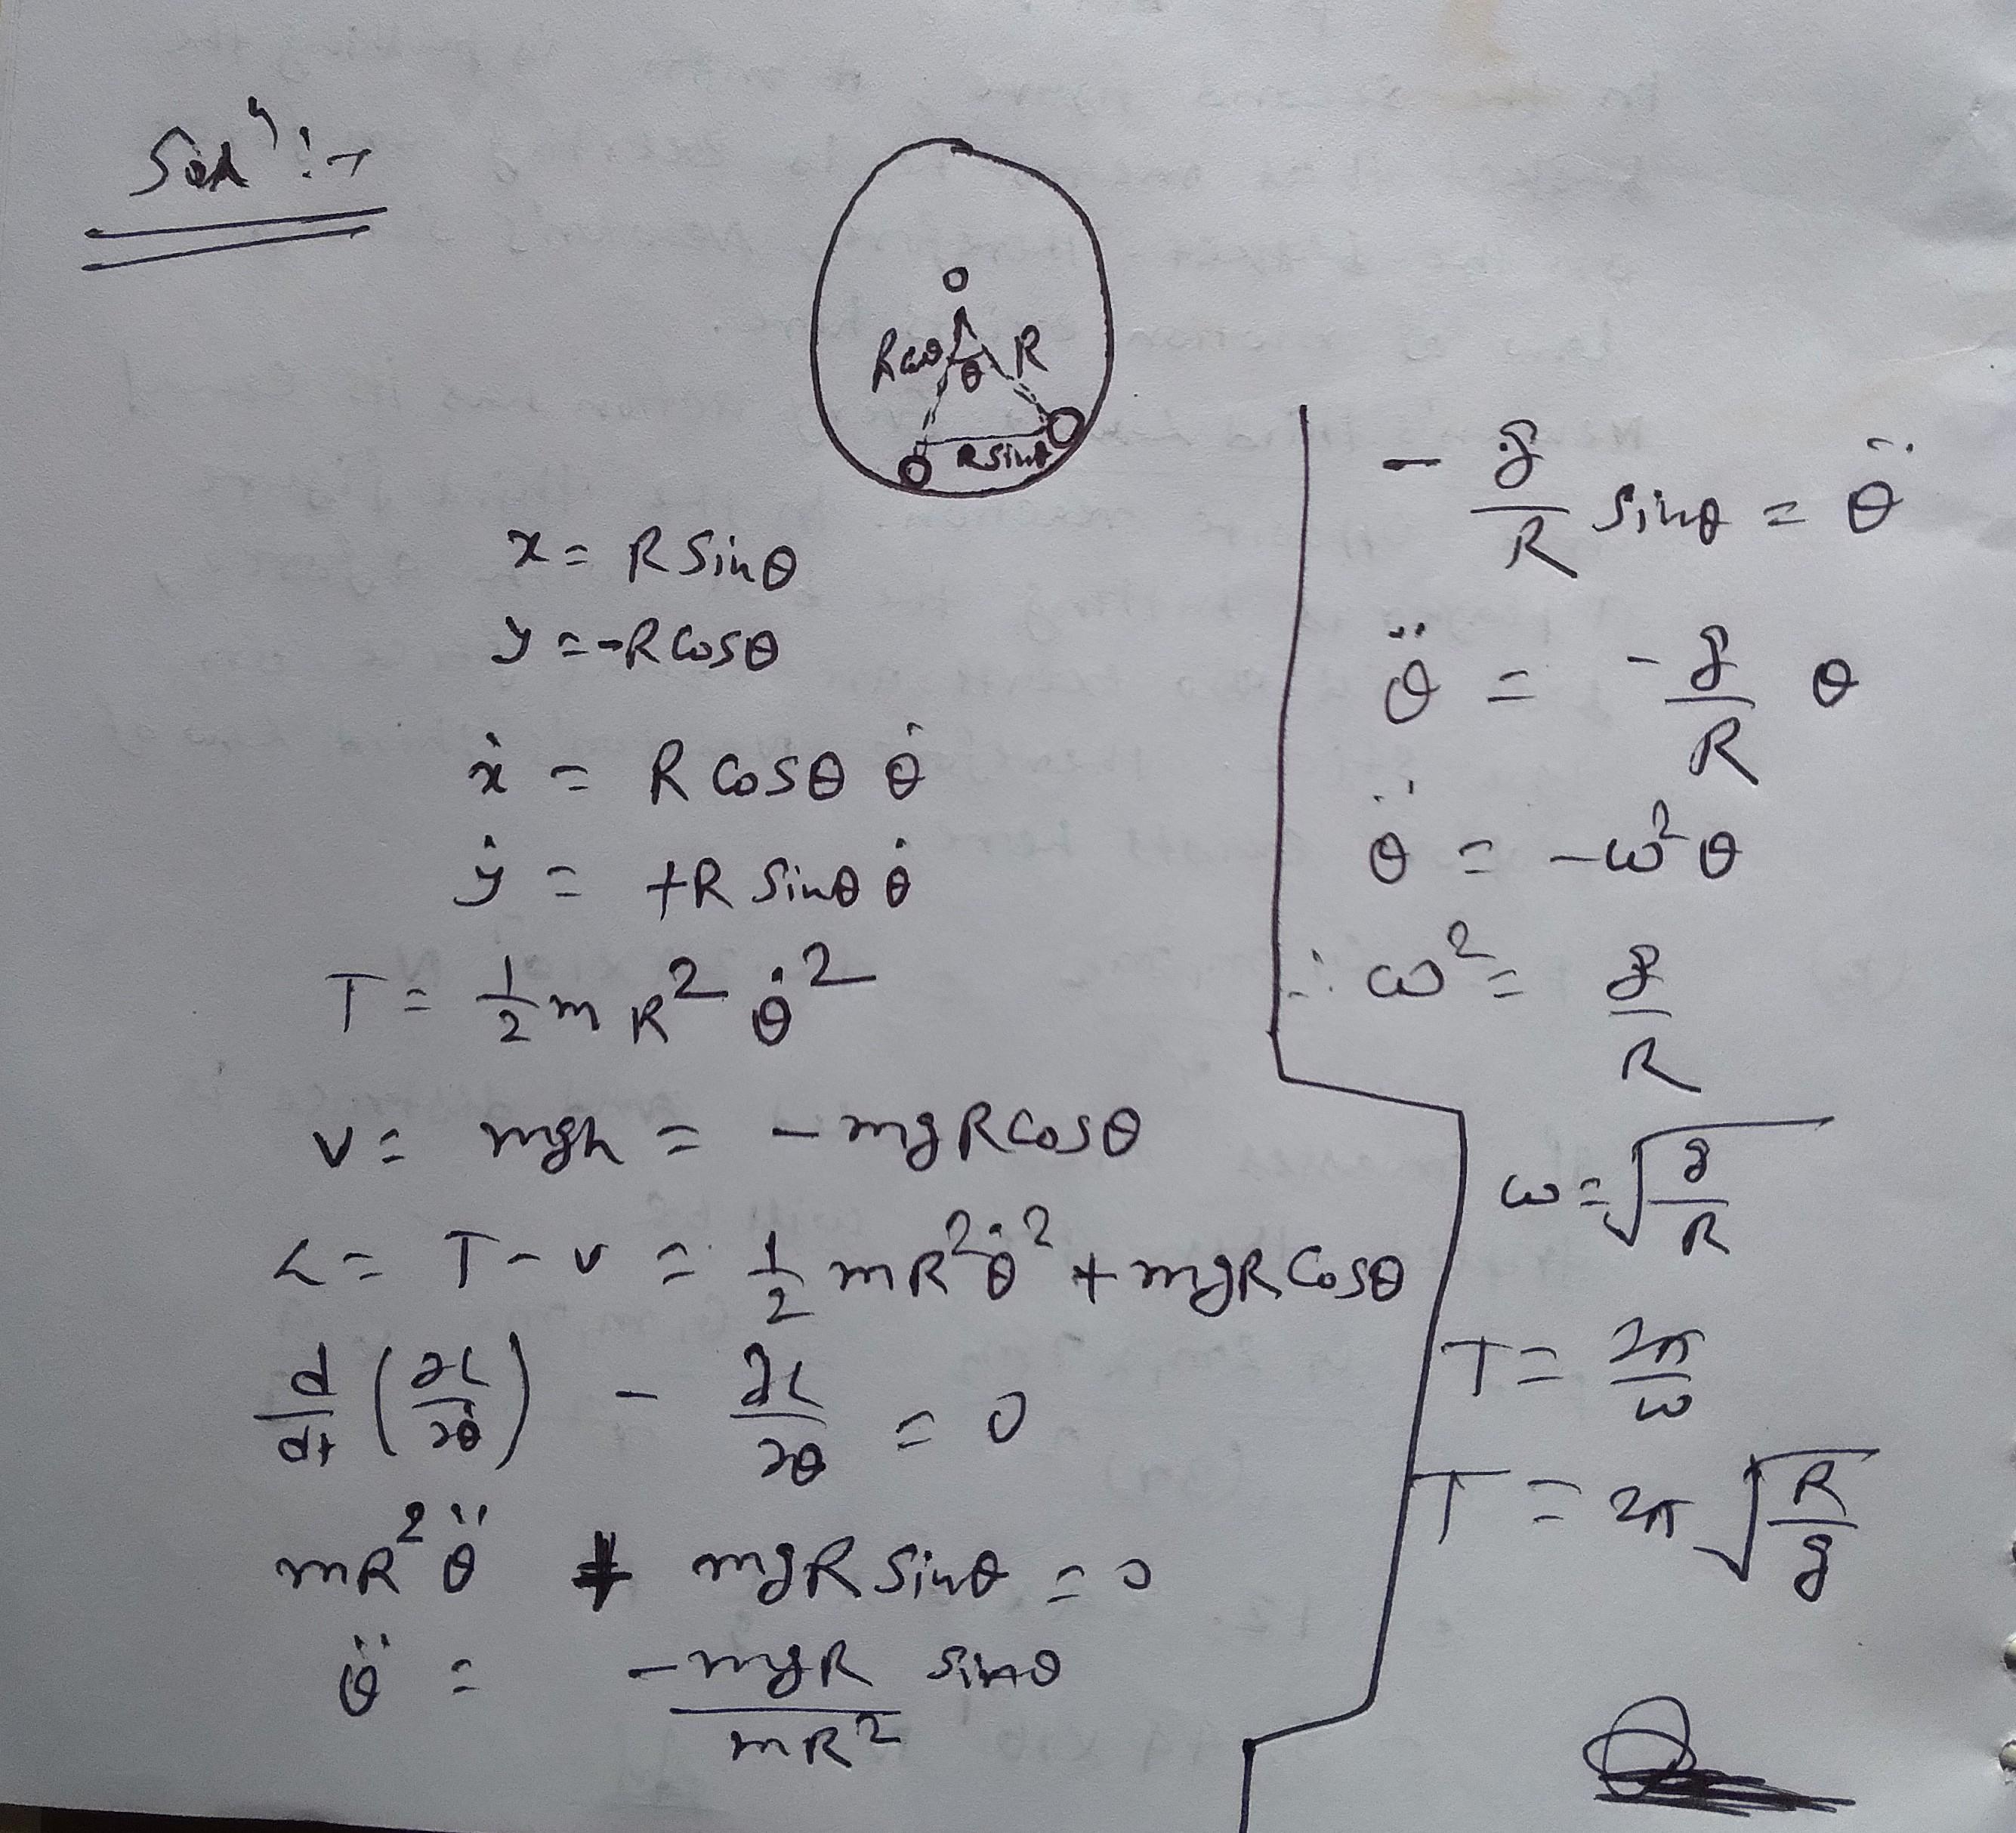 Solⁿ :-
O
Rcosθ θ R
R sinθ
x = R Sinθ
y = -R Cosθ
ẋ = R Cosθ θ̇
ẏ = +R Sinθ θ̇
T = 1/2 m R² θ̇²
v = mgh = - mgR Cosθ
L = T - v = 1/2 mR² θ̇² + mgR Cosθ
d/dt (∂L/∂θ̇) - ∂L/∂θ = 0
mR² θ̈ + mgR Sinθ = 0
θ̈ = -mgR/mR² sinθ
- g/R Sinθ = θ̈
θ̈ = -g/R θ
θ̈ = -ω² θ
∴ ω² = g/R
ω = √(g/R)
T = 2π/ω
T = 2π √(R/g)